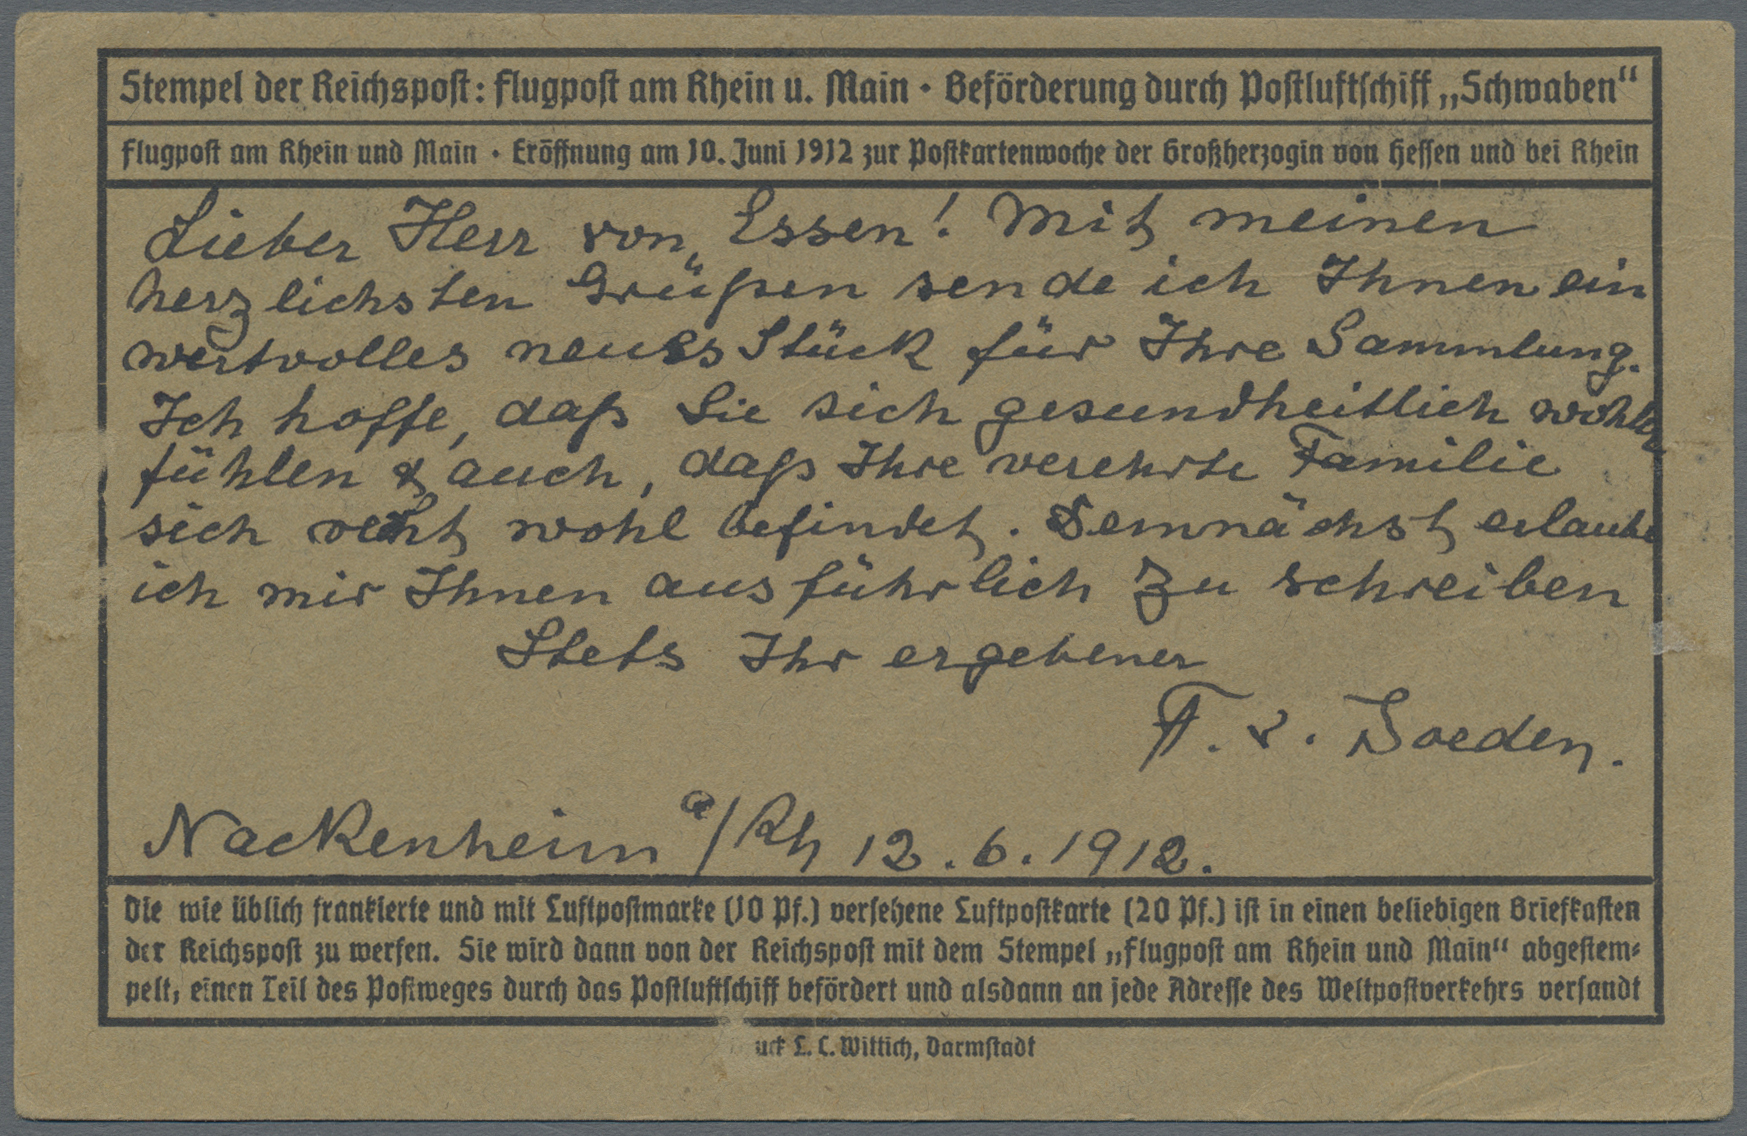 Stempel der Reichspost: Flugpost am Rhein u. Main · Beförderung durch Postluftschiff „Schwaben“
Flugpost am Rhein und Main · Eröffnung am 10. Juni 1912 zur Postkartenwoche der Großherzogin von Hessen und bei Rhein
Lieber Herr von Essen! Mit meinen
herzlichsten Grüßen sende ich Ihnen ein
wertvolles neues Stück für Ihre Sammlung.
Ich hoffe, daß Sie sich gesundheitlich
fühlen & auch, daß Ihre verehrte Familie
sich recht wohl befindet. Demnächst erlaube
ich mir Ihnen ausführlich zu schreiben
Stets Ihr ergebener
v.
Nackenheim a/Rh 12.6.1912.
Die wie üblich frankierte und mit Luftpostmarke (10 Pf.) versehene Luftpostkarte (20 Pf.) ist in einen beliebigen Briefkasten
der Reichspost zu werfen. Sie wird dann von der Reichspost mit dem Stempel „Flugpost am Rhein und Main“ abgestem-
pelt, einen Teil des Postweges durch das Postluftschiff befördert und alsdann an jede Adresse des Weltpostverkehrs versandt
L. C. Wittich, Darmstadt